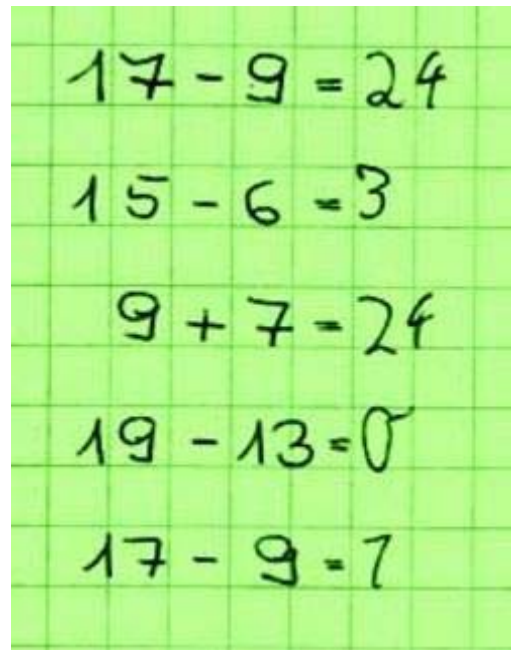 17 - 9 = 24
15 - 6 = 3
9 + 7 = 24
19 - 13 = 0
17 - 9 = ?